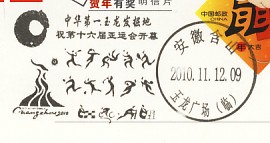 贺年有奖 明信片
中华第一玉龙发掘地
祝第十六届亚运会开幕
Guangzhou 2010
中国邮政
CHINA
安徽含山
2010.11.12.09
玉龙广场（临）